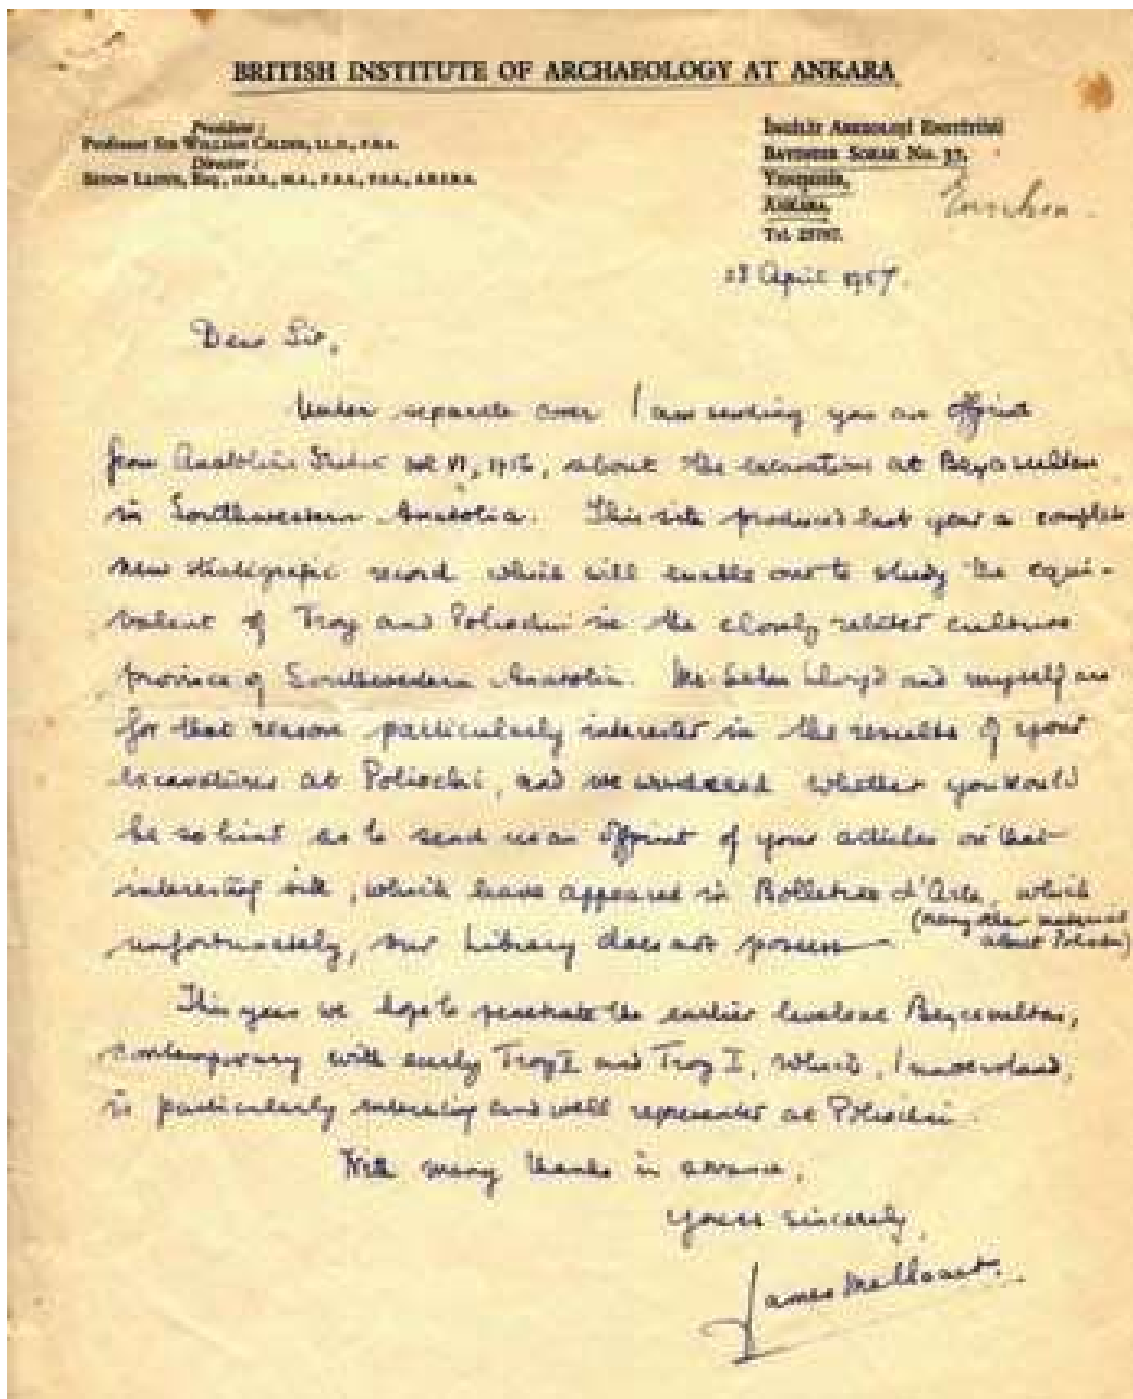 BRITISH INSTITUTE OF ARCHAEOLOGY AT ANKARA
President:
Professor Sir William Calder, LL.D., F.B.A.
Director:
Seton Lloyd, Esq., O.B.E., M.A., F.B.A., F.S.A., A.R.I.B.A.
İngiliz Arkeoloji Enstitüsü
Bayındır Sokak No. 37,
Yenişehir,
Ankara
Tel.
April 1957.
Dear Sir,
Under separate cover I am sending you an offprint
from Anatolian Studies vol VI, 1956, about the excavation at Beycesultan
in Southwestern Anatolia. This site produced last year a complete
new stratigrafic record which will enable one to study the equi-
valent of Troy and Poliochni in the closely related culture
province of Southwestern Anatolia. Mr Seton Lloyd and myself are
for that reason particularly interested in the results of your
excavations at Poliochni, and we wondered whether you would
be so kind as to send us an offprint of your articles on that
interesting site, which have appeared in Bolletino d'Arte, which
unfortunately, our Library does not possess
(
about Poliochni)
This year we hope to penetrate the earlier levels at Beycesultan,
contemporary with early Troy I and Troy I, which, I understand,
is particularly interesting and well represented at Poliochni.
With many thanks in advance,
Yours sincerely,
James Mellaart.